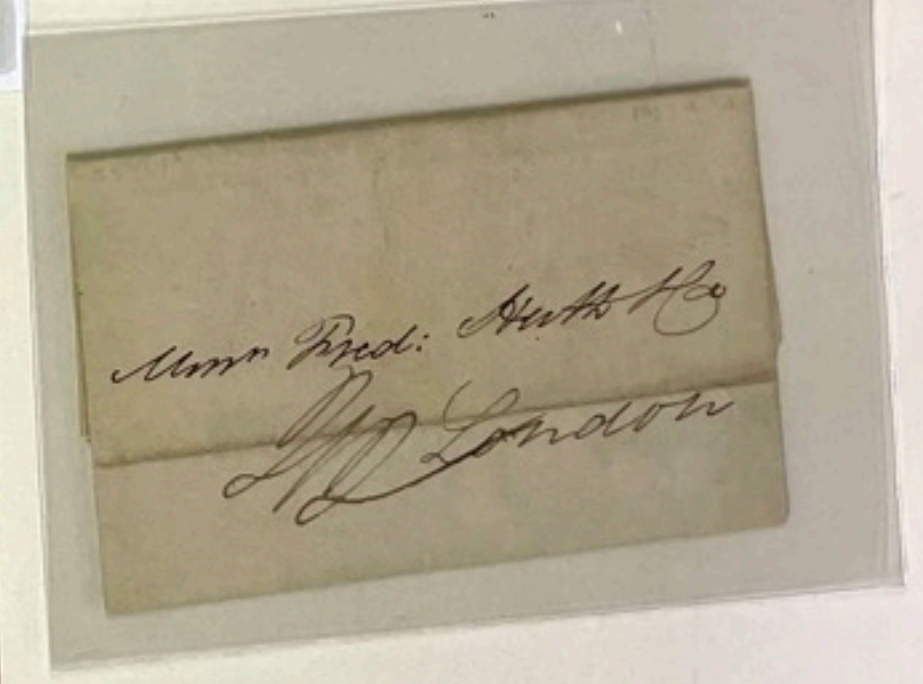 Messrs Fred: Huth & Co
London